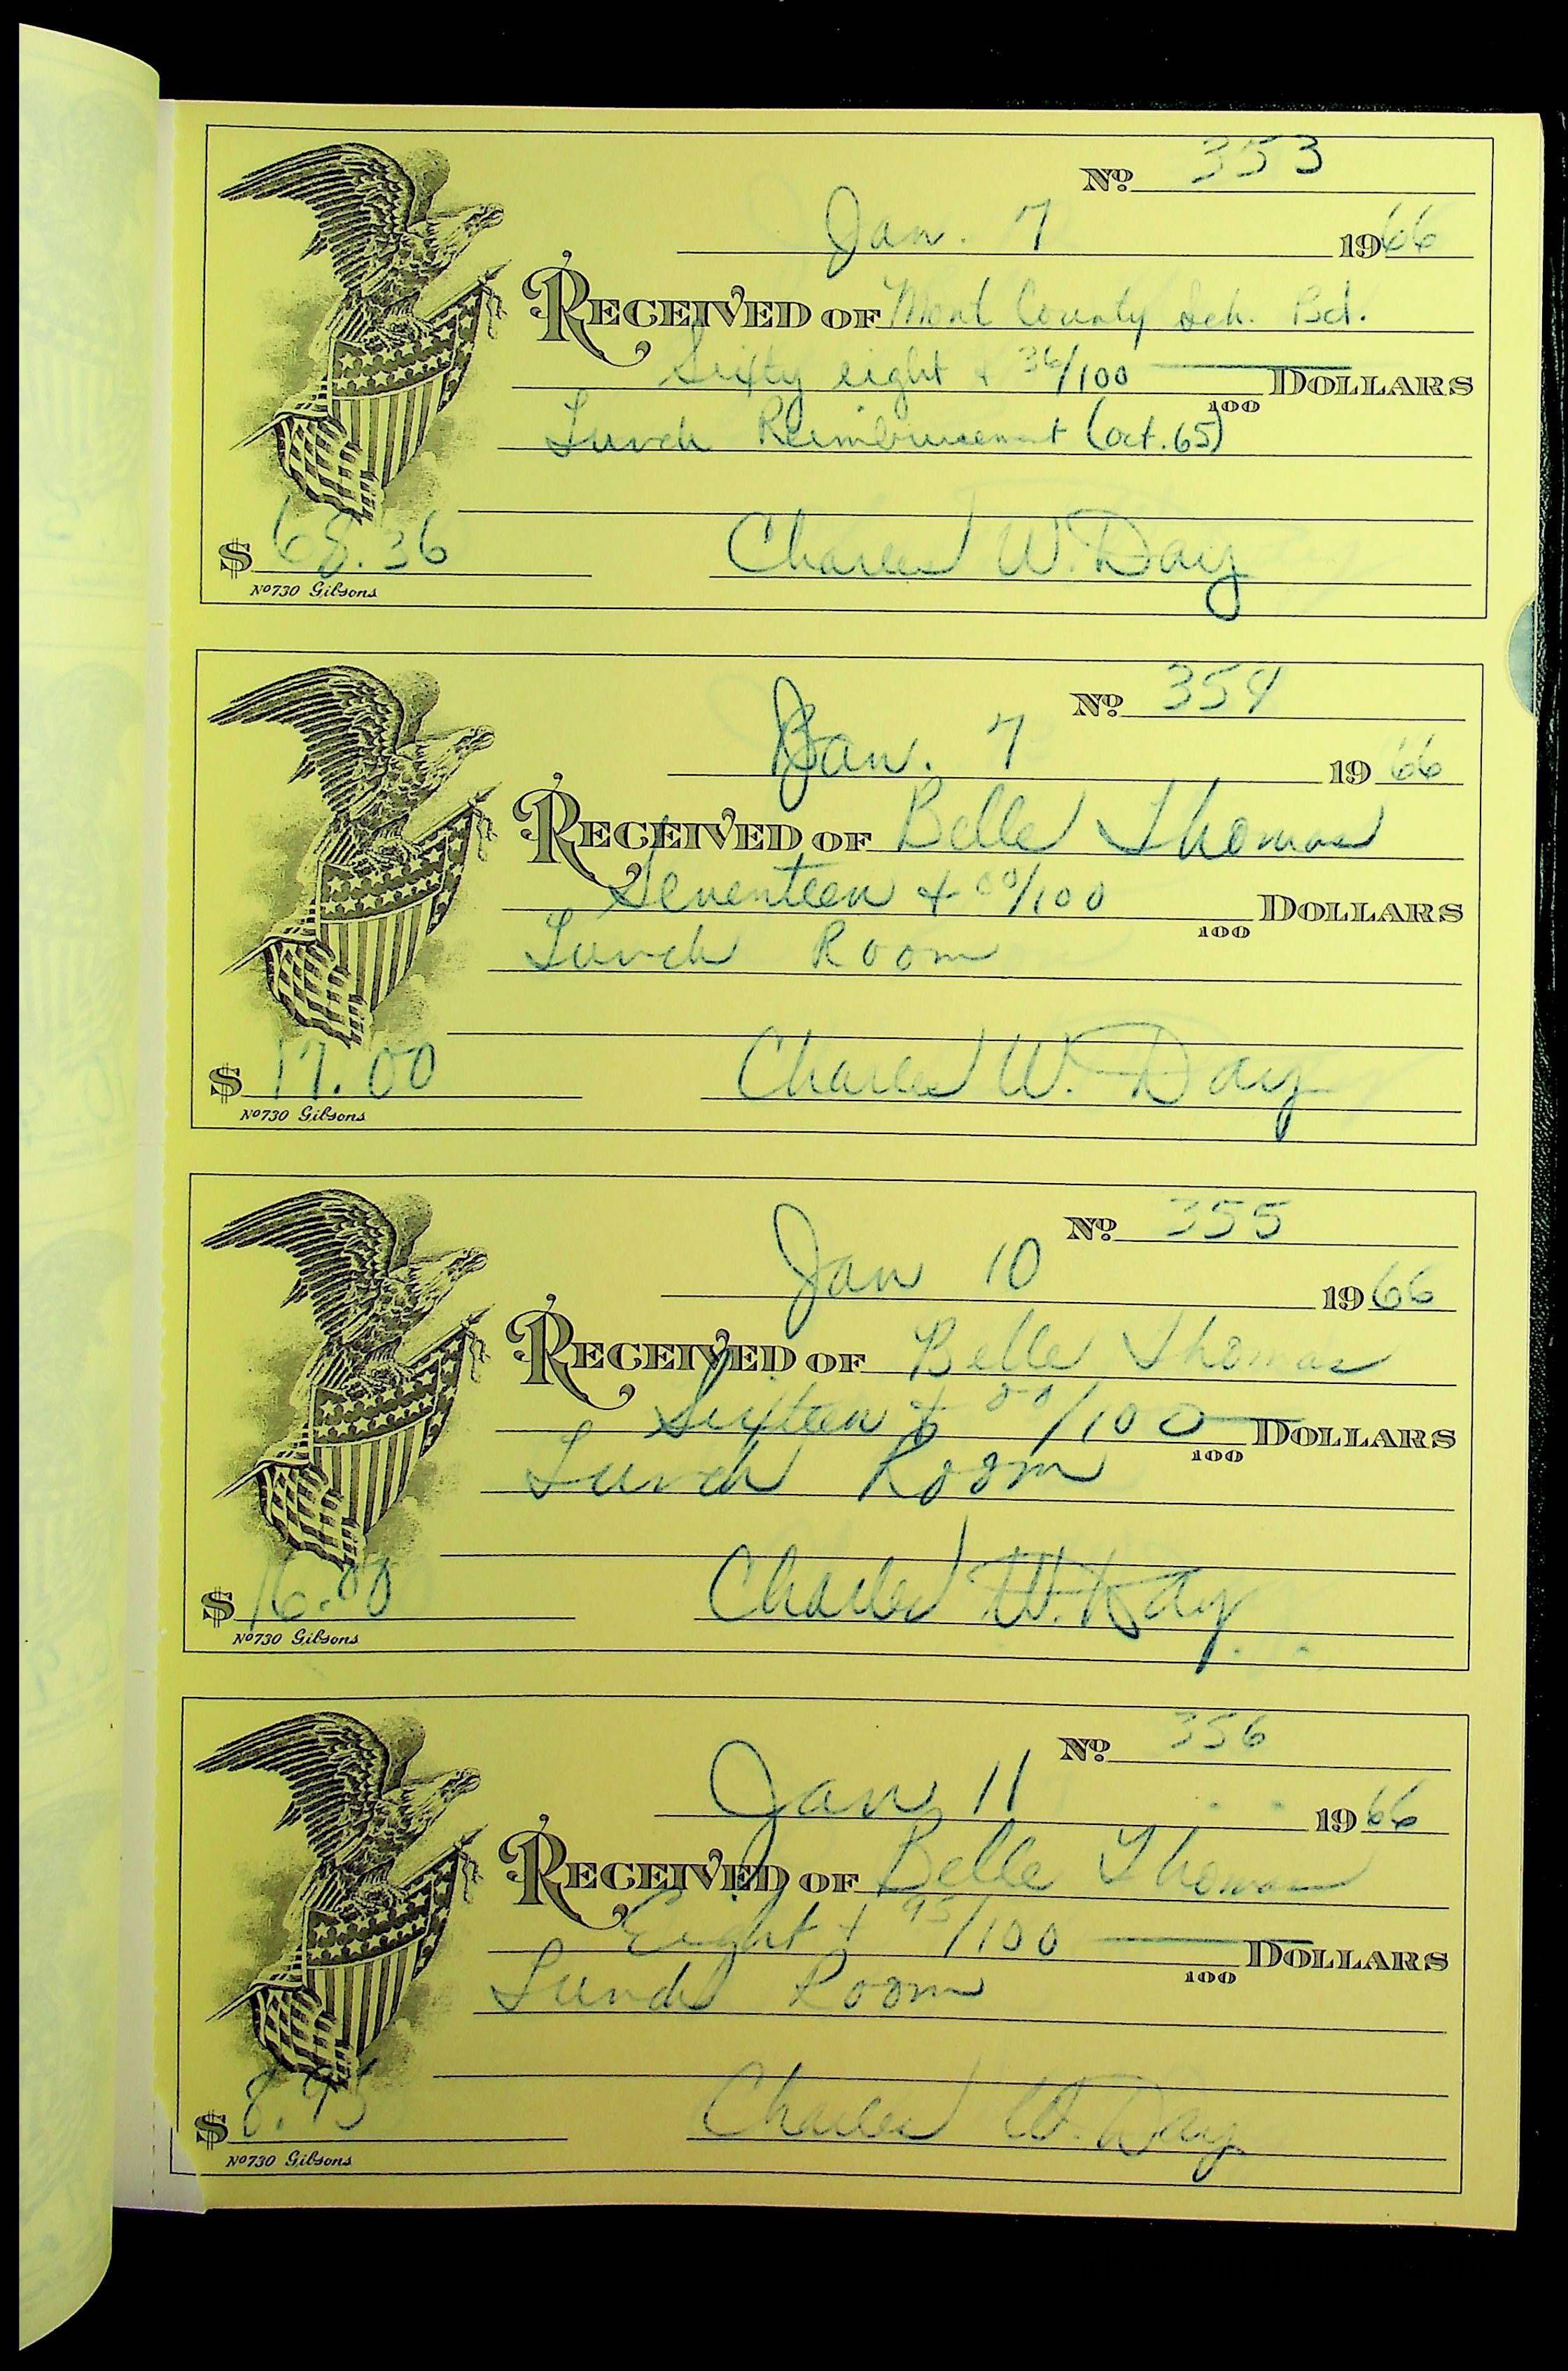 No. 353
Jan. 7 1966
RECEIVED OF Mont County Sch. Bd.
Sixty eight & 36/100 DOLLARS
100
Lunch Reimbursement (Oct. 65)
$ 68.36 Charles W. Day
No 730 Gibsons
No. 354
Jan. 7 1966
RECEIVED OF Belle Thomas
Seventeen + 00/100 DOLLARS
100
Lunch Room
$ 17.00 Charles W. Day
No 730 Gibsons
No. 355
Jan 10 1966
RECEIVED OF Belle Thomas
Sixteen & 00/100 DOLLARS
100
Lunch Room
$ 16.00 Charles W. Day
No 730 Gibsons
No. 356
Jan 11 1966
RECEIVED OF Belle Thomas
Eight + 95/100 DOLLARS
100
Lunch Room
$ 8.95 Charles W. Day
No 730 Gibsons